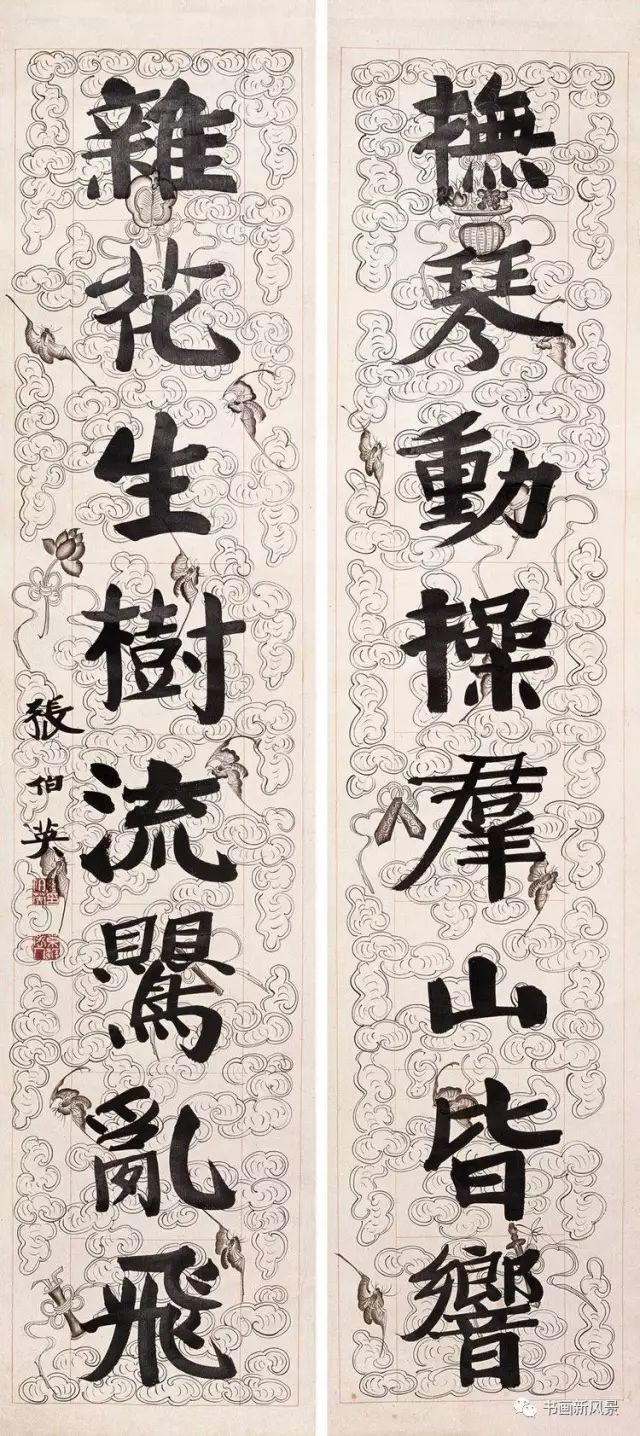 撫琴動操羣山皆響
雜花生樹流鶯亂飛
張伯英
书画新风景